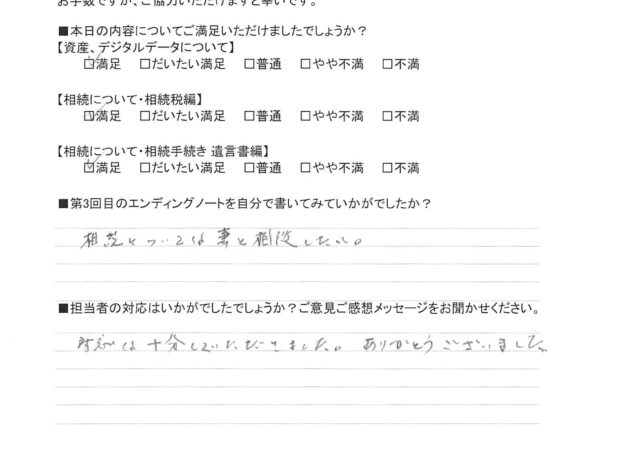 お手数ですが、ご協力いただけますと幸いです。
■本日の内容についてご満足いただけましたでしょうか？
【資産、デジタルデータについて】
☑満足 □だいたい満足 □普通 □やや不満 □不満
【相続について・相続税編】
☑満足 □だいたい満足 □普通 □やや不満 □不満
【相続について・相続手続き 遺言書編】
☑満足 □だいたい満足 □普通 □やや不満 □不満
■第3回目のエンディングノートを自分で書いてみていかがでしたか？
相続については妻と相談したい。
■担当者の対応はいかがでしたでしょうか？ご意見ご感想メッセージをお聞かせください。
対応は十分していただきました。ありがとうございました。